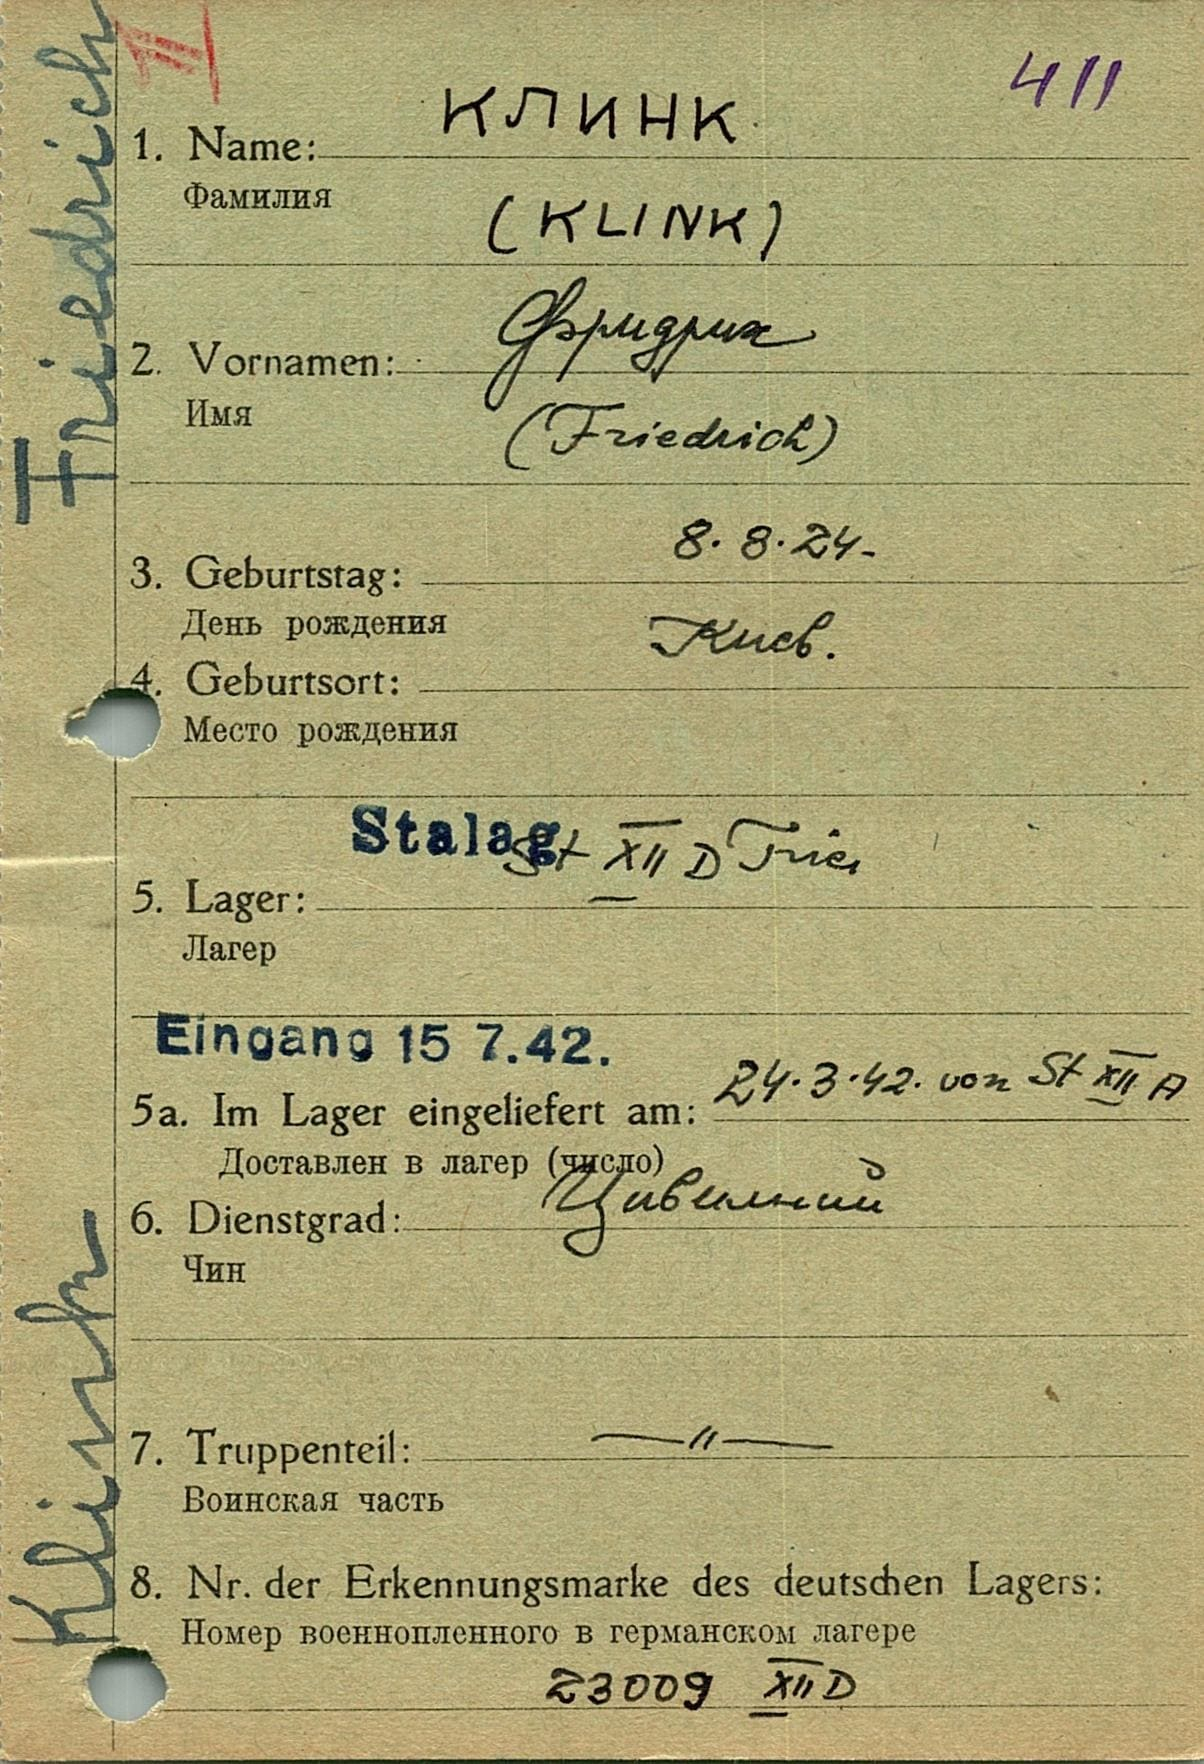 II
411
КЛИНК
1. Name:
Фамилия
(KLINK)
Фридрих
2. Vornamen:
Имя
(Friedrich)
8.8.24-
3. Geburtstag:
День рождения
Киев.
4. Geburtsort:
Место рождения
Stalag
St XII D Trier
5. Lager:
Лагер
Eingang 15 7.42.
24.3.42. von St XII A
5a. Im Lager eingeliefert am:
Доставлен в лагер (число)
Цивилний
6. Dienstgrad:
Чин
7. Truppenteil: —"—
Воинская часть
8. Nr. der Erkennungsmarke des deutschen Lagers:
Номер военнопленного в германском лагере
23009 XII D
Klink Friedrich